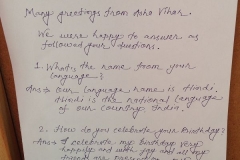 Many greetings from Asha Vihar.
We were happy to answer as
followed your questions.
1. What's the name from your
language?
Ans→ Our language name is Hindi.
Hindi is the national language
of our country India.
2. How do you celebrate your Birthday?
Ans→ I celebrate my birthday very
happily and with joy and all my
friends are